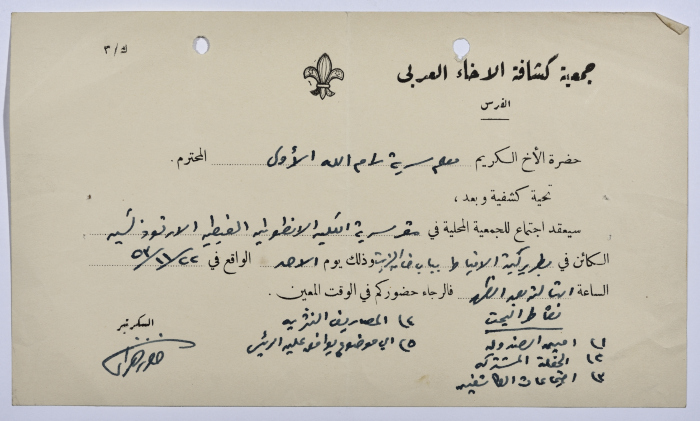 ك/٣
جمعية كشافة الاخاء العربى
القدس
حضرة الأخ الكريم معلم سرية رام الله الأولى المحترم.
تحية كشفية وبعد،
سيعقد اجتماع للجمعية المحلية في مقر سرية الكلية الانطونية القبطية الارثوذكسية
الكائن في بطريركية الاقباط بباب خان الزيت وذلك يوم الاحد الواقع في ٢٢/١١/٥٣
الساعة الثالثة بعد الظهر فالرجاء حضوركم في الوقت المعين.
نقاط البحث
١) امين الصندوق
٢) الحفلة المشتركة
٣) اجتماعات الكشفية
٤) المصاريف النثرية
٥) اي موضوع يوافق عليه الرئيس
السكرتير